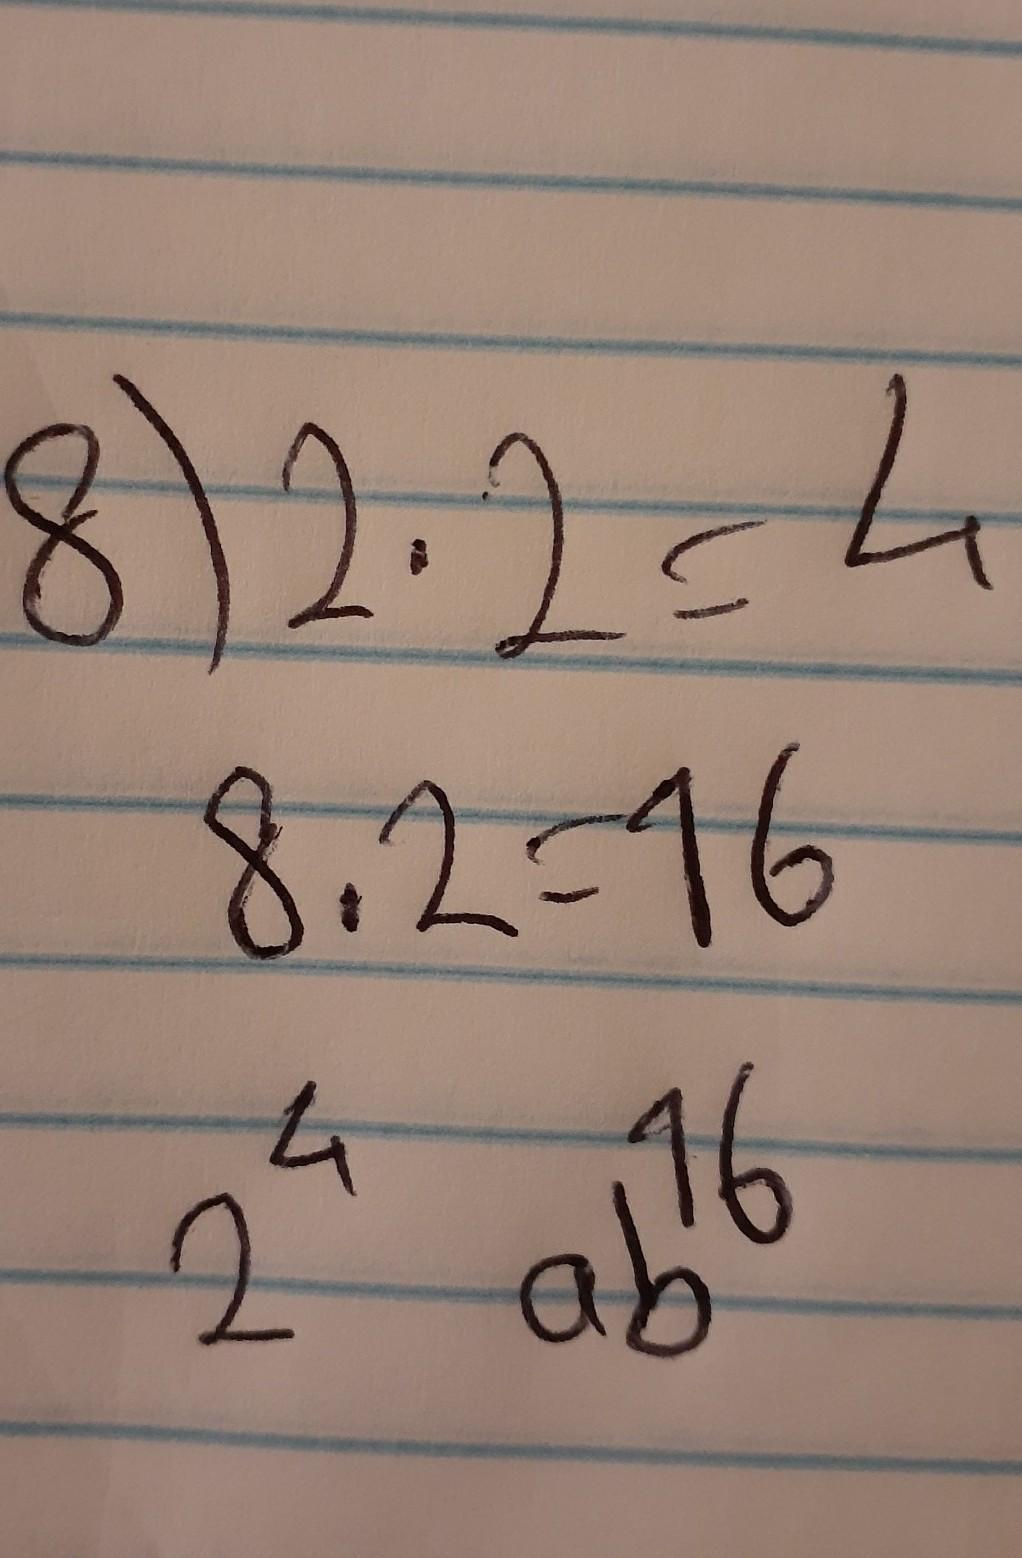 8) 2 · 2 = 4
8 . 2 = 16
2⁴ ab¹⁶